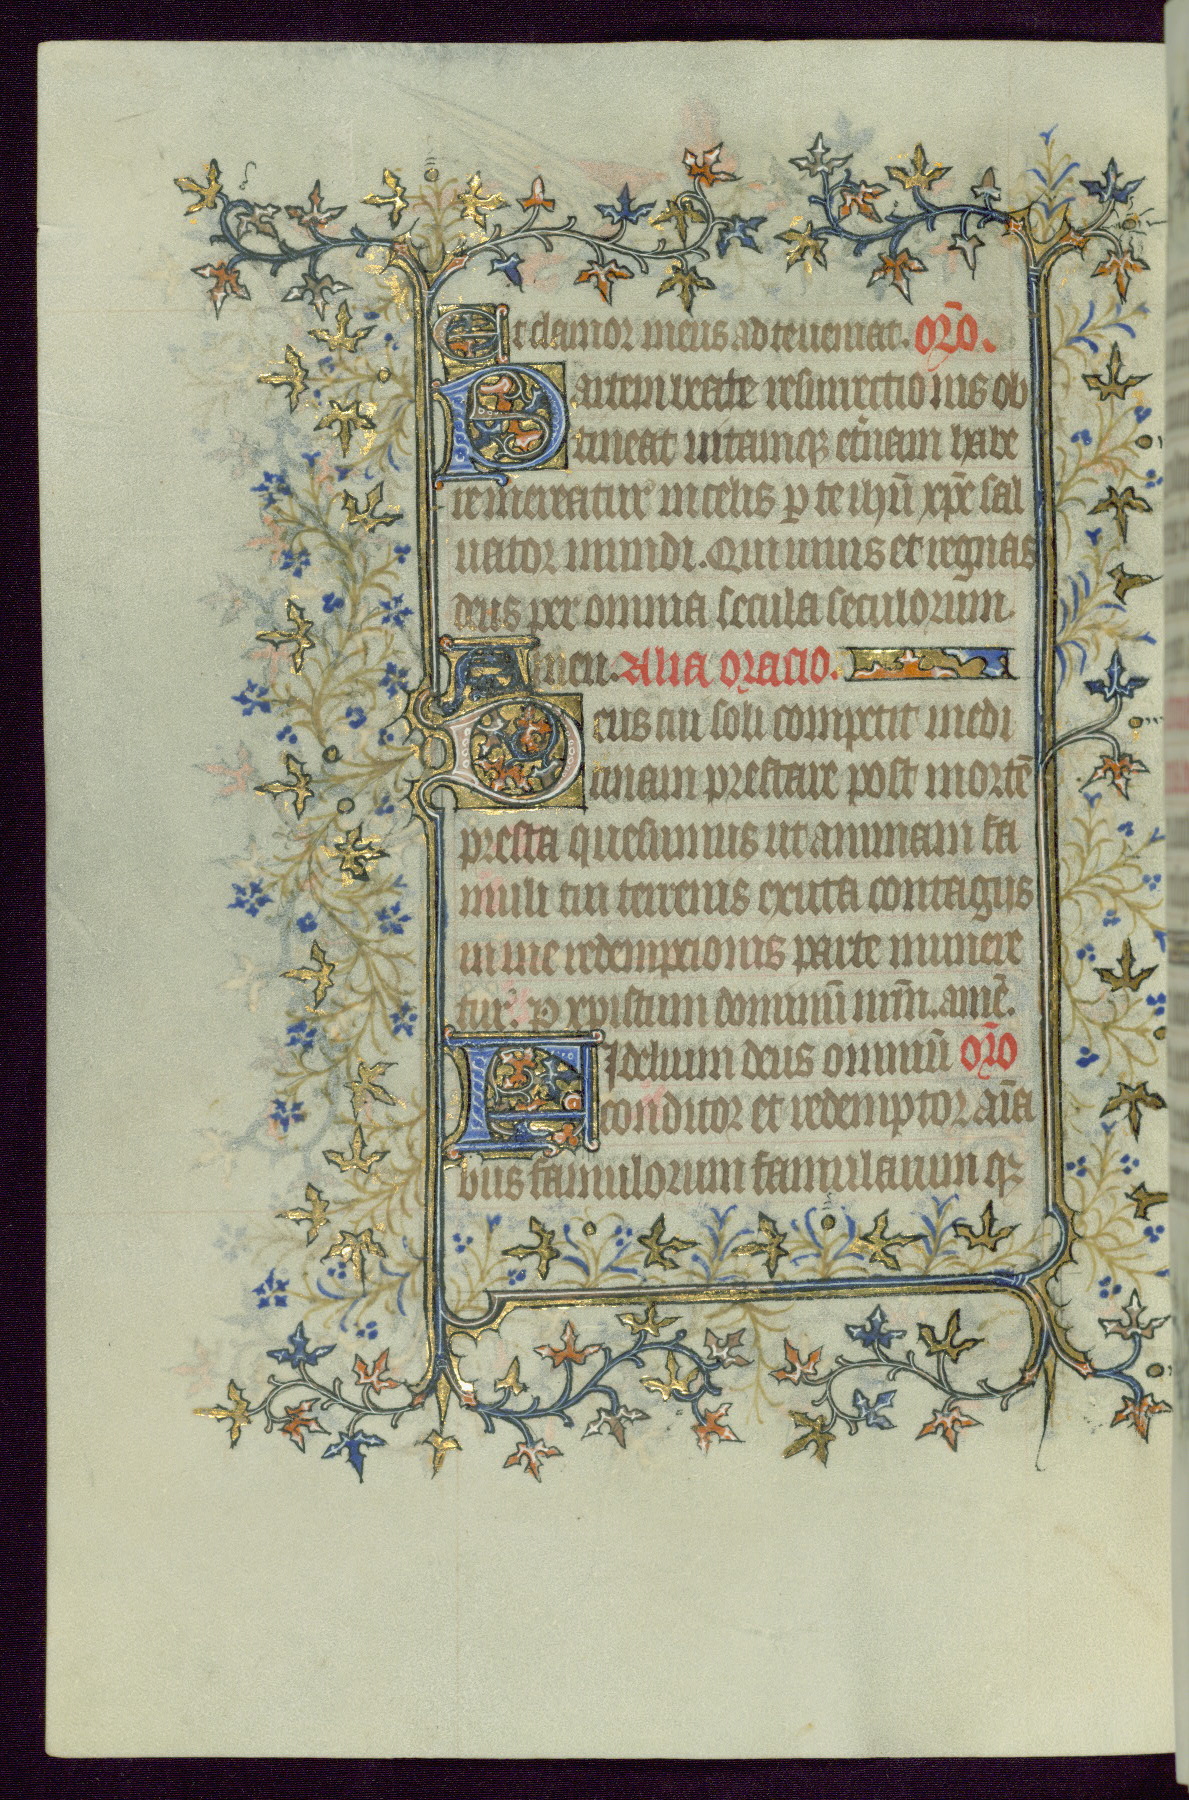 Et clamor meus ad te ueniat. or̄o.
Partem beate resurrectionis ob
tineat uitamqꝫ et̄nam habe
re mereatur in celis p te ihū xp̄e sal
uator mundi. Qui uiuis et regnas
deus per omnia secula seculorum
Amen. Alia oracio.
Deus cui soli competit medi
cinam prestare post mortē
presta quesumus ut animam fa
muli tui terrenis exuta contagijs
in tue redempcionis parte numere
tur. P xpistum dominū nr̄m. amē.
Fidelium deus omniū or̄o
conditor et redemptor aīa
bus famulorum famularum qꝫ